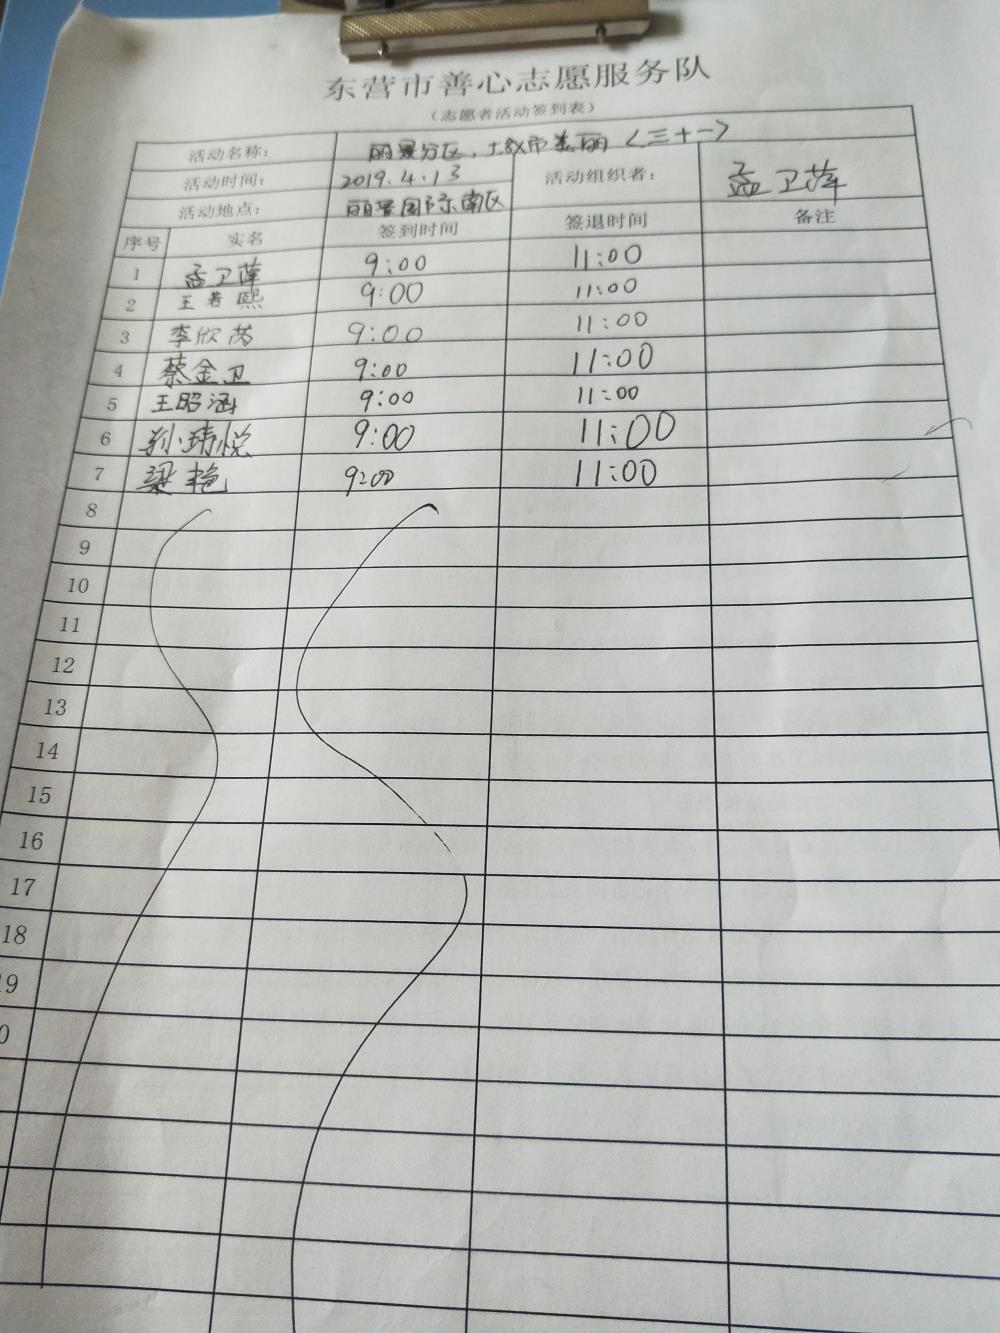 东营市善心志愿服务队
（志愿者活动签到表）
活动名称： 丽景分区，城市美丽〈三十一〉
活动时间： 2019.4.13 活动组织者： 孟卫萍
活动地点： 丽景国际南区
序号 实名 签到时间 签退时间 备注
1 孟卫萍 9:00 11:00
2 王若熙 9:00 11:00
3 李欣芮 9:00 11:00
4 蔡金卫 9:00 11:00
5 王昭涵 9:00 11:00
6 孙玮悦 9:00 11:00
7 梁艳 9:00 11:00
8
9
10
11
12
13
14
15
16
17
18
19
0